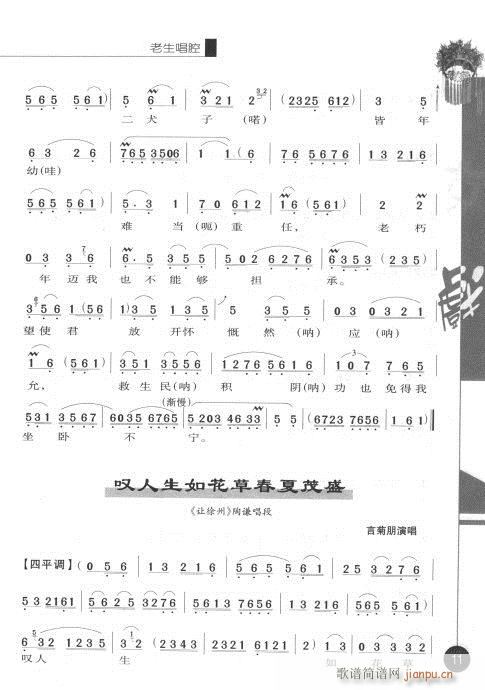 老生唱腔
5 6 5 5 (5 6 1) 5 6 1 3 2 1 2 3 2 (2325 612) 3 5
二 犬 子 (喏) 皆 年
6 3 2 6 7653506 1 1 (6 7 6 5 6 1 3 2 1 6)
幼 (哇)
5 6 5 5 (5 6 1) 5. 3 1 7 0 6 1 2 1 6 (5 6 1) 2 2
难 当 (呃) 重 任, 老 朽
0 3 3 7 6 5 2 0 2 6 2 7 6 6 3 5 3 (2 3 5)
年 迈 我 也 不 能 够 担 承。
3 5 6 1 (0 6) 1 3 5 5 5 3 5 5 0 3 0 5
望 使 君 放 开怀 慨 然 (呐) 应 (呐)
1 6 (5 6 1) 3 5 1 3 5 5 6 1 2 7 6 5 6 1 0 7 7 6 5
允, 救 生 民 (呐) 积 阴 (呐) 功 也 免 得 我
(渐慢)
5 3 1 3 5 6 7 6035 6765 5203 4633 5 5 (6723 7656 1 6 1)
坐 卧 不 宁。
叹人生如花草春夏茂盛
《让徐州》陶谦唱段
言菊朋演唱
【四平调】 (0 5 6 1 6 1 5 6 1 6 1 2 5 3 2 7 6
5 3 2 1 6 1 5 6 1 2 0 3 2 3 5 6 1 5 6 1 2 1 6 1 5 6 5 5 6 1)
6 3 2 1 2 3 5 3 2 (2 3 5 2 3 2 1 6 1 2 1 3 2) 0 3 3 2 3 2
叹 人 生 如 花 草
11
歌谱简谱网
jianpu.cn